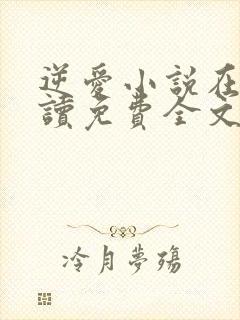 逆愛小說在
讀免費全文
冷月夢殤